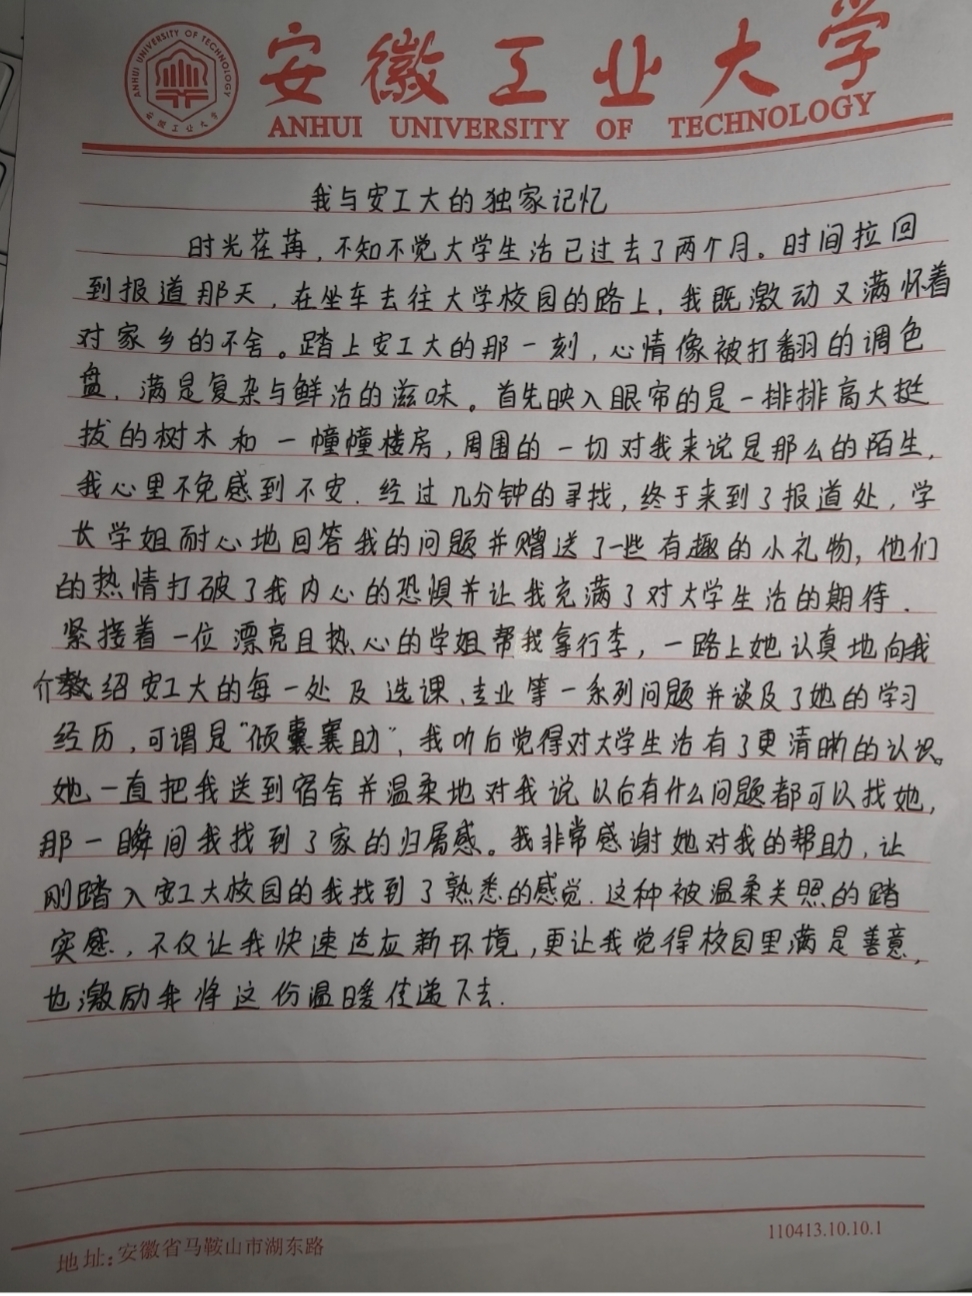 安徽工业大学
ANHUI UNIVERSITY OF TECHNOLOGY
ANHUI UNIVERSITY OF TECHNOLOGY
安徽工业大学
我与安工大的独家记忆
时光荏苒，不知不觉大学生活已过去了两个月。时间拉回
到报道那天，在坐车去往大学校园的路上，我既激动又满怀着
对家乡的不舍。踏上安工大的那一刻，心情像被打翻的调色
盘，满是复杂与鲜活的滋味。首先映入眼帘的是一排排高大挺
拔的树木和一幢幢楼房，周围的一切对我来说是那么的陌生，
我心里不免感到不安．经过几分钟的寻找，终于来到了报道处，学
长学姐耐心地回答我的问题并赠送了一些有趣的小礼物，他们
的热情打破了我内心的恐惧并让我充满了对大学生活的期待．
紧接着一位漂亮且热心的学姐帮我拿行李，一路上她认真地向我
介绍安工大的每一处及选课、专业等一系列问题并谈及了她的学习
经历，可谓是“倾囊襄助”，我听后觉得对大学生活有了更清晰的认识。
她一直把我送到宿舍并温柔地对我说以后有什么问题都可以找她，
那一瞬间我找到了家的归属感。我非常感谢她对我的帮助，让
刚踏入安工大校园的我找到了熟悉的感觉．这种被温柔关照的踏
实感，不仅让我快速适应新环境，更让我觉得校园里满是善意，
也激励我将这份温暖传递下去．
110413.10.10.1
地址：安徽省马鞍山市湖东路